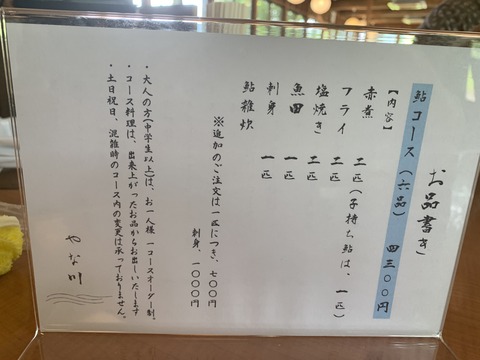 お品書き
鮎コース(六品) 四三〇〇円
【内容】
赤煮 二匹(子持ち鮎は、一匹)
フライ 二匹
塩焼き 二匹
魚田 一匹
刺身 一匹
鮎雑炊
※追加のご注文は一匹につき、七〇〇円
刺身、一〇〇〇円
・大人の方(中学生以上)は、お一人様 一コースオーダー制。
・コース料理は、出来上がったお品からお出しいたします
・土日祝日、混雑時のコース内の変更は承っておりません。
やな川